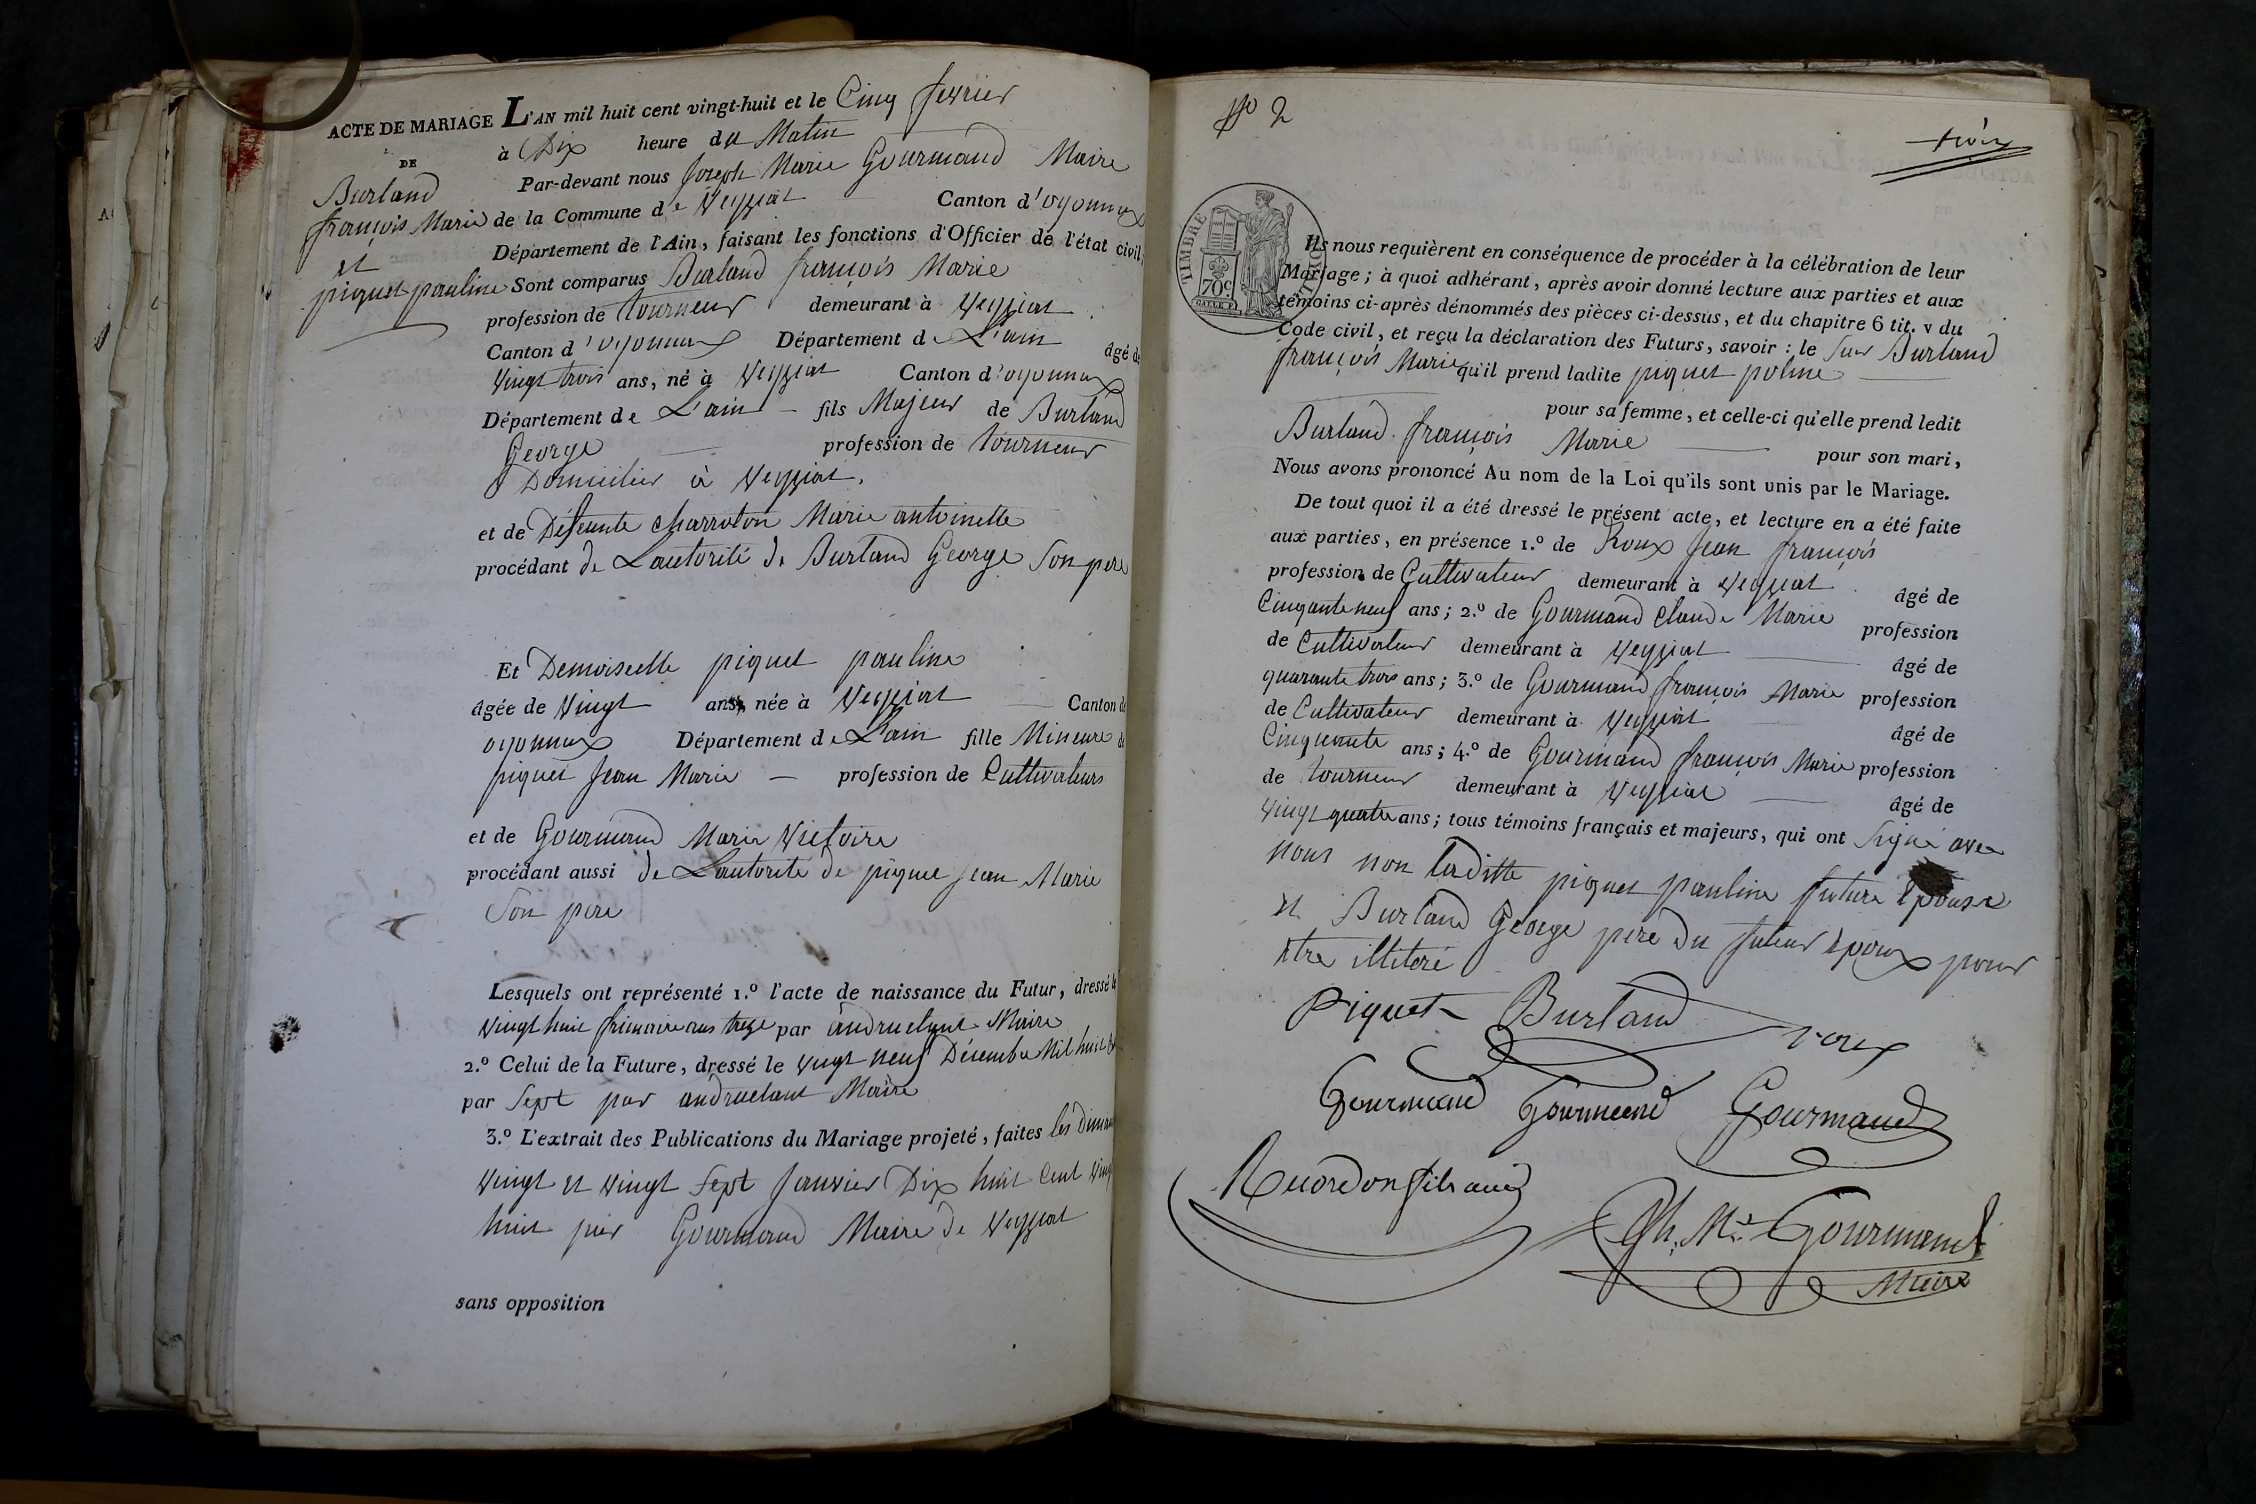 ACTE DE MARIAGE L'AN mil huit cent vingt-huit et le Cinq fevrier
DE
Burland
françois Marie
et
piquet pauline
à Dix heure du Matin
Par-devant nous Joseph Marie Gourmand Maire
de la Commune de Veyziat Canton d'oyonnax
Département de l'Ain, faisant les fonctions d'Officier de l'état civil,
Sont comparus Burland françois Marie
profession de tourneur demeurant à Veyziat
Canton d'oyonnax Département de L'ain âgé de
Vingt trois ans, né à Veyziat Canton d'oyonnax
Département de L'ain fils Majeur de Burland
George profession de tourneur
Domicilier à Veyziat.
et de Défeunte charroton Marie antoinette
procédant de Lautorité de Burland George Son pere
Et Demoiselle piquet pauline
âgée de Vingt ans, née à Veyziat Canton de
oyonnax Département de L'ain fille Mineure de
piquet Jean Marie profession de Cultivateurs
et de Gourmand Marie Victoire
procédant aussi de Lautorité de piquet Jean Marie
Son pere
Lesquels ont représenté 1.º l'acte de naissance du Futur, dressé le
Vingt huit frimaire ans treze par andruetant Maire
2.º Celui de la Future, dressé le vingt neuf Décembre Mil huit
par Sept par andruetant Maire
3.º L'extrait des Publications du Mariage projeté, faites les
Vingt et Vingt Sept Janvier Dix huit Cent
huit par Gourmand Maire de Veyziat
sans opposition
Nº 2
trois
TIMBRE ROYAL
70 C
Ils nous requièrent en conséquence de procéder à la célébration de leur
Mariage; à quoi adhérant, après avoir donné lecture aux parties et aux
témoins ci-après dénommés des pièces ci-dessus, et du chapitre 6 tit. v du
Code civil, et reçu la déclaration des Futurs, savoir : le Sieur Burland
françois Marie qu'il prend ladite piquet poline
pour sa femme, et celle-ci qu'elle prend ledit
Burland françois Marie pour son mari,
Nous avons prononcé Au nom de la Loi qu'ils sont unis par le Mariage.
De tout quoi il a été dressé le présent acte, et lecture en a été faite
aux parties, en présence 1.º de Roux Jean françois
profession de Cultivateur demeurant à Veyziat âgé de
Cinquante neuf ans; 2.º de Gourmand Claude Marie profession
de Cultivateur demeurant à Veyziat âgé de
quarante trois ans; 3.º de Gourmand françois Marie profession
de Cultivateur demeurant à Veyziat âgé de
Cinquante ans; 4.º de Gourmand françois Marie profession
de tourneur demeurant à Veyziat âgé de
Vingt quatre ans; tous témoins français et majeurs, qui ont Signé avec
nous non laditte piquet pauline future Epouse
et Burland George pere du futur Epoux pour
etre illiteré
Piquet Burland roux
Gourmand Gourmand Gourmand
Jh. Mie Gourmand
Maire